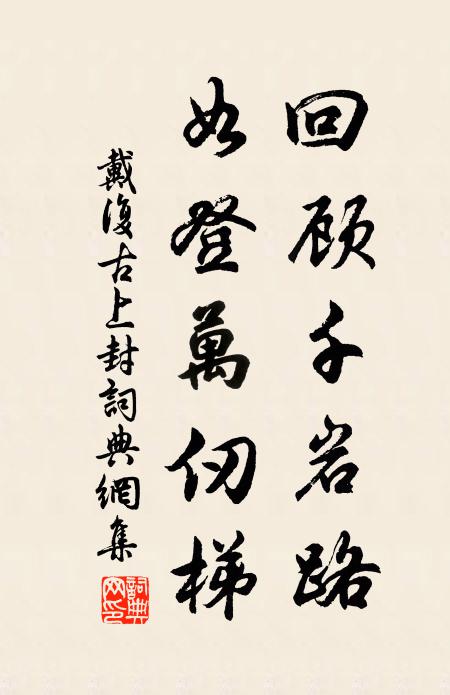 回顾千岩路
如登萬仞梯
戴復古上封詞典網集
詞典网印